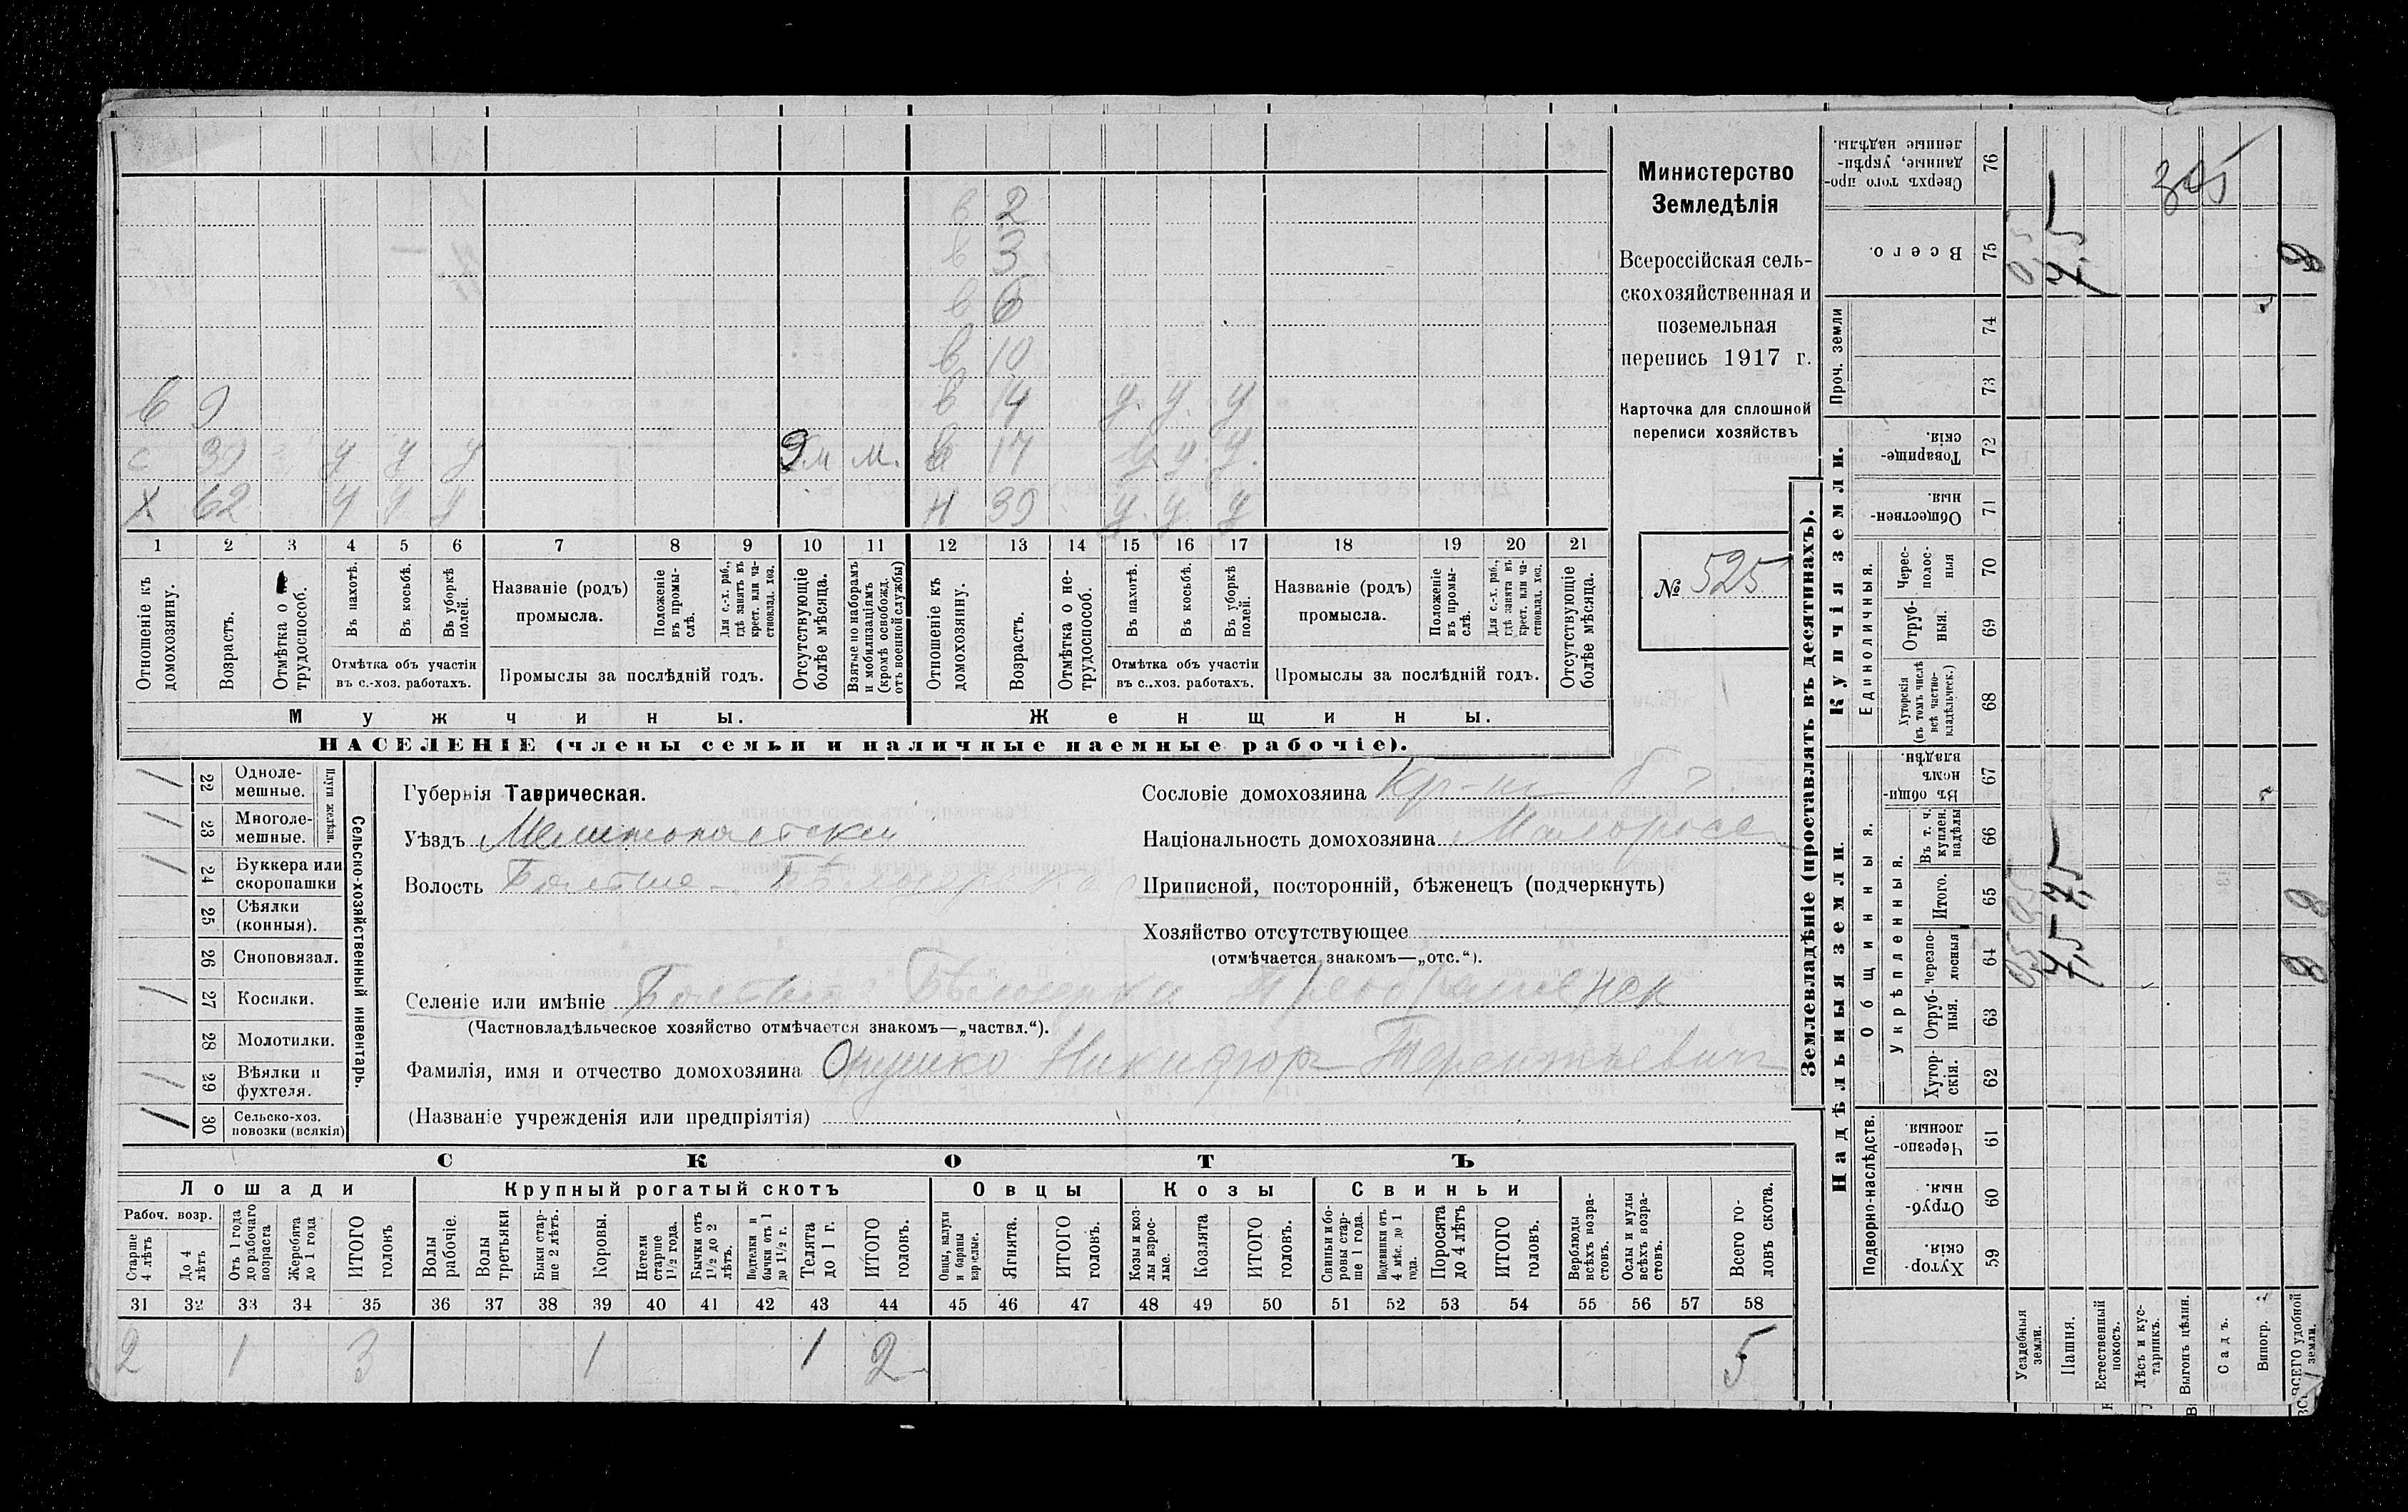 в 2
в 3
в 6
в 10
в 9 в 14 у. у. у
с 39 у у у 9 м м. в 17 у. у. у.
х 62 у у у н 39 у. у. у
1 2 3 4 5 6 7 8 9 10 11 12 13 14 15 16 17 18 19 20 21
Отношеніе къ домохозяину.
Возрастъ.
Отмѣтка о не трудоспособ.
Въ пахотѣ.
Въ косьбѣ.
Въ уборкѣ полей.
Отмѣтка объ участіи въ с.-хоз. работахъ.
Названіе (родъ) промысла.
Положеніе въ промыслѣ.
Для с.-х. раб., гдѣ занятъ въ крест. или частновлад. хоз.
Промыслы за послѣдній годъ.
Отсутствующіе болѣе мѣсяца.
Взятые по наборамъ и мобилизаціямъ (кромѣ освобожд. отъ военной службы)
Отношеніе къ домохозяину.
Возрастъ.
Отмѣтка о не-трудоспособ.
Въ пахотѣ.
Въ косьбѣ.
Въ уборкѣ полей.
Отмѣтка объ участіи въ с..хоз. работахъ.
Названіе (родъ) промысла.
Положеніе въ промыслѣ.
Для с.-х. раб., гдѣ занята въ крест. или частновлад. хоз.
Промыслы за послѣдній годъ.
Отсутствующіе болѣе мѣсяца.
Мужчины. Женщины.
НАСЕЛЕНІЕ (члены семьи и наличные наемные рабочіе).
Министерство
Земледѣлія
Всероссійская сель-
скохозяйственная и
поземельная
перепись 1917 г.
Карточка для сплошной
переписи хозяйствъ
№ 525
Сельско-хозяйственный инвентарь.
Плуги желѣзн.
22 Одноле-мешные.
23 Многоле-мешные.
24 Буккера или скоропашки
25 Сѣялки (конныя).
26 Сноповязал.
27 Косилки.
28 Молотилки.
29 Вѣялки и фухтеля.
30 Сельско-хоз. повозки (всякія)
Губернія Таврическая.
Уѣздъ Мелитопольскій
Волость Больше-Бѣлозерская
Селеніе или имѣніе Больше Бѣлозерка
(Частновладѣльческое хозяйство отмѣчается знакомъ—„частвл.“).
Фамилія, имя и отчество домохозяина Онушко Никифор Терентьевич
(Названіе учрежденія или предпріятія)
Сословіе домохозяина Кр-нъ
Національность домохозяина Малоросс
Приписной, посторонній, бѣженецъ (подчеркнуть)
Хозяйство отсутствующее
(отмѣчается знакомъ—„отс.“).
СКОТЪ
Лошади Крупный рогатый скотъ Овцы Козы Свиньи
Рабоч. возр.
Старше 4 лѣтъ
До 4 лѣтъ
Отъ 1 года до рабочаго возраста
Жеребята до 1 года
ИТОГО головъ
Волы рабочіе.
Волы третьяки
Быки стар-ше 2 лѣтъ.
Коровы.
Нетели старше 1½ года.
Бычки отъ 1½ до 2 лѣтъ.
Подтелки и бычки отъ 1 до 1½ г.
Телята до 1 г.
ИТОГО головъ.
Овцы, валухи и бараны взрослые.
Ягнята.
ИТОГО головъ.
Козы и коз-лы взрос-лые.
Козлята
ИТОГО головъ.
Свиньи и бо-ровы стар-ше 1 года.
Подсвинки отъ 4 мѣс. до 1 года.
Поросята до 4 лѣтъ
ИТОГО головъ.
Верблюды всѣхъ возра-стовъ.
Ослы и мулы всѣхъ возра-стовъ.
Всего го-ловъ скота.
31 32 33 34 35 36 37 38 39 40 41 42 43 44 45 46 47 48 49 50 51 52 53 54 55 56 57 58
2 1 3 1 1 2 5
Землевладѣніе (проставлять въ десятинахъ).
Купчія земли.
Надѣльныя земли.
Сверхъ того про-данные, укрѣп-ленные надѣлы. 76
Всего. 75
Проч. земли 74 73
Товарище-скія. 72
Обществен-ныя. 71
Единоличныя.
Черес-полос-ныя 70
Отруб-ныя. 69
Хуторскія (въ томъ числѣ всѣ частно-владѣльческ.) 68
Общинныя.
Въ общи-номъ владѣн. 67
Укрѣпленныя.
Въ т. ч. куплен. надѣлы 66
Итого. 65
Черезпо-лосныя 64
Отруб-ныя. 63
Хутор-скія. 62
Подворно-наслѣдств.
Черезпо-лосныя. 61
Отруб-ныя. 60
Хутор-скія. 59
Усадебныя земли.
Пашня.
Естественный покосъ.
Лѣсъ и кус-тарникъ.
Выгонъ цѣлин.
Садъ.
Виногр.
ВСЕГО удобной земли.
0,5 7,5 8
0,5 7,5 8
0,5 7,5 8